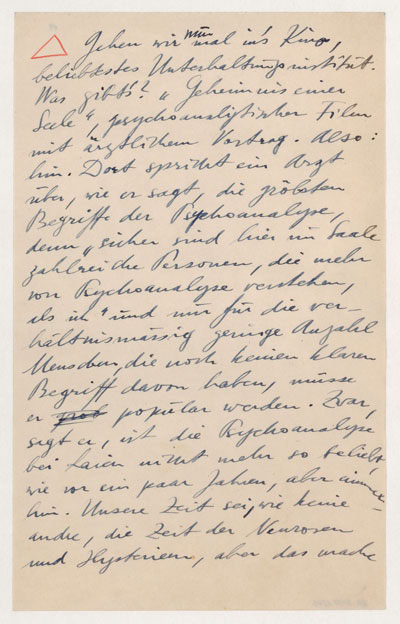 Gehen wir nun mal in's Kino,
beliebtestes Unterhaltungsinstitut.
Was gibt's? „Geheimnis einer
Seele", psychoanalytischer Film
mit ärztlichem Vortrag. Also:
hin. Dort spricht ein Arzt
über, wie er sagt, die gröbsten
Begriffe der Psychoanalyse,
denn „sicher sind hier im Saale
zahlreiche Personen, die mehr
von Psychoanalyse verstehen,
als ich" und nur für die ver-
hältnismässig geringe Anzahl
Menschen, die noch keinen klaren
Begriff davon haben, müsse
er populär werden. Zwar,
sagt er, ist die Psychoanalyse
bei Laien nicht mehr so beliebt,
wie vor ein paar Jahren, aber immer-
hin. Unsere Zeit sei, wie keine
andre, die Zeit der Neurosen
und Hysterien, aber das mache